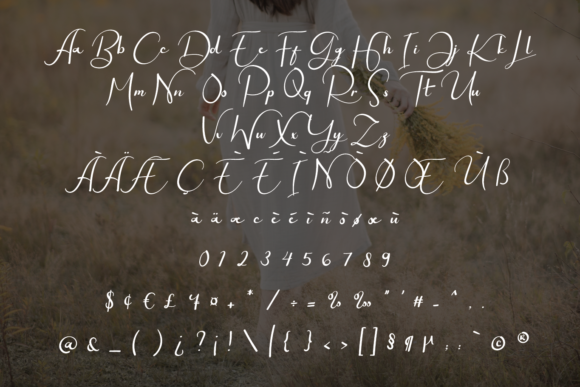 Aa Bb Cc Dd Ee Ff Gg Hh Ii Jj Kk Ll
Mm Nn Oo Pp Qq Rr Ss Tt Uu
Vv Ww Xx Yy Zz
À Ä Æ Ç È É Ì Ñ Ò Ø Œ Ù ß
à ä æ c è é ì ñ ò ø œ ù
0 1 2 3 4 5 6 7 8 9
$ ¢ € £ ¥ ¤ + * / ÷ = % ‰ " ' # - ^ , .
@ & _ ( ) ¿ ? ¡ ! \ | { } < > [ ] § ¶ µ : ; ` © ®